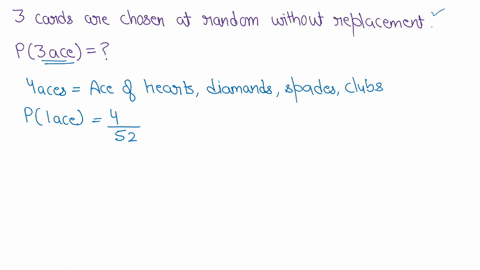 3 cards are chosen at random without replacement.
P(3ace) = ?
4aces = Ace of hearts, diamands, spades, clubs
P(1ace) = 4/52